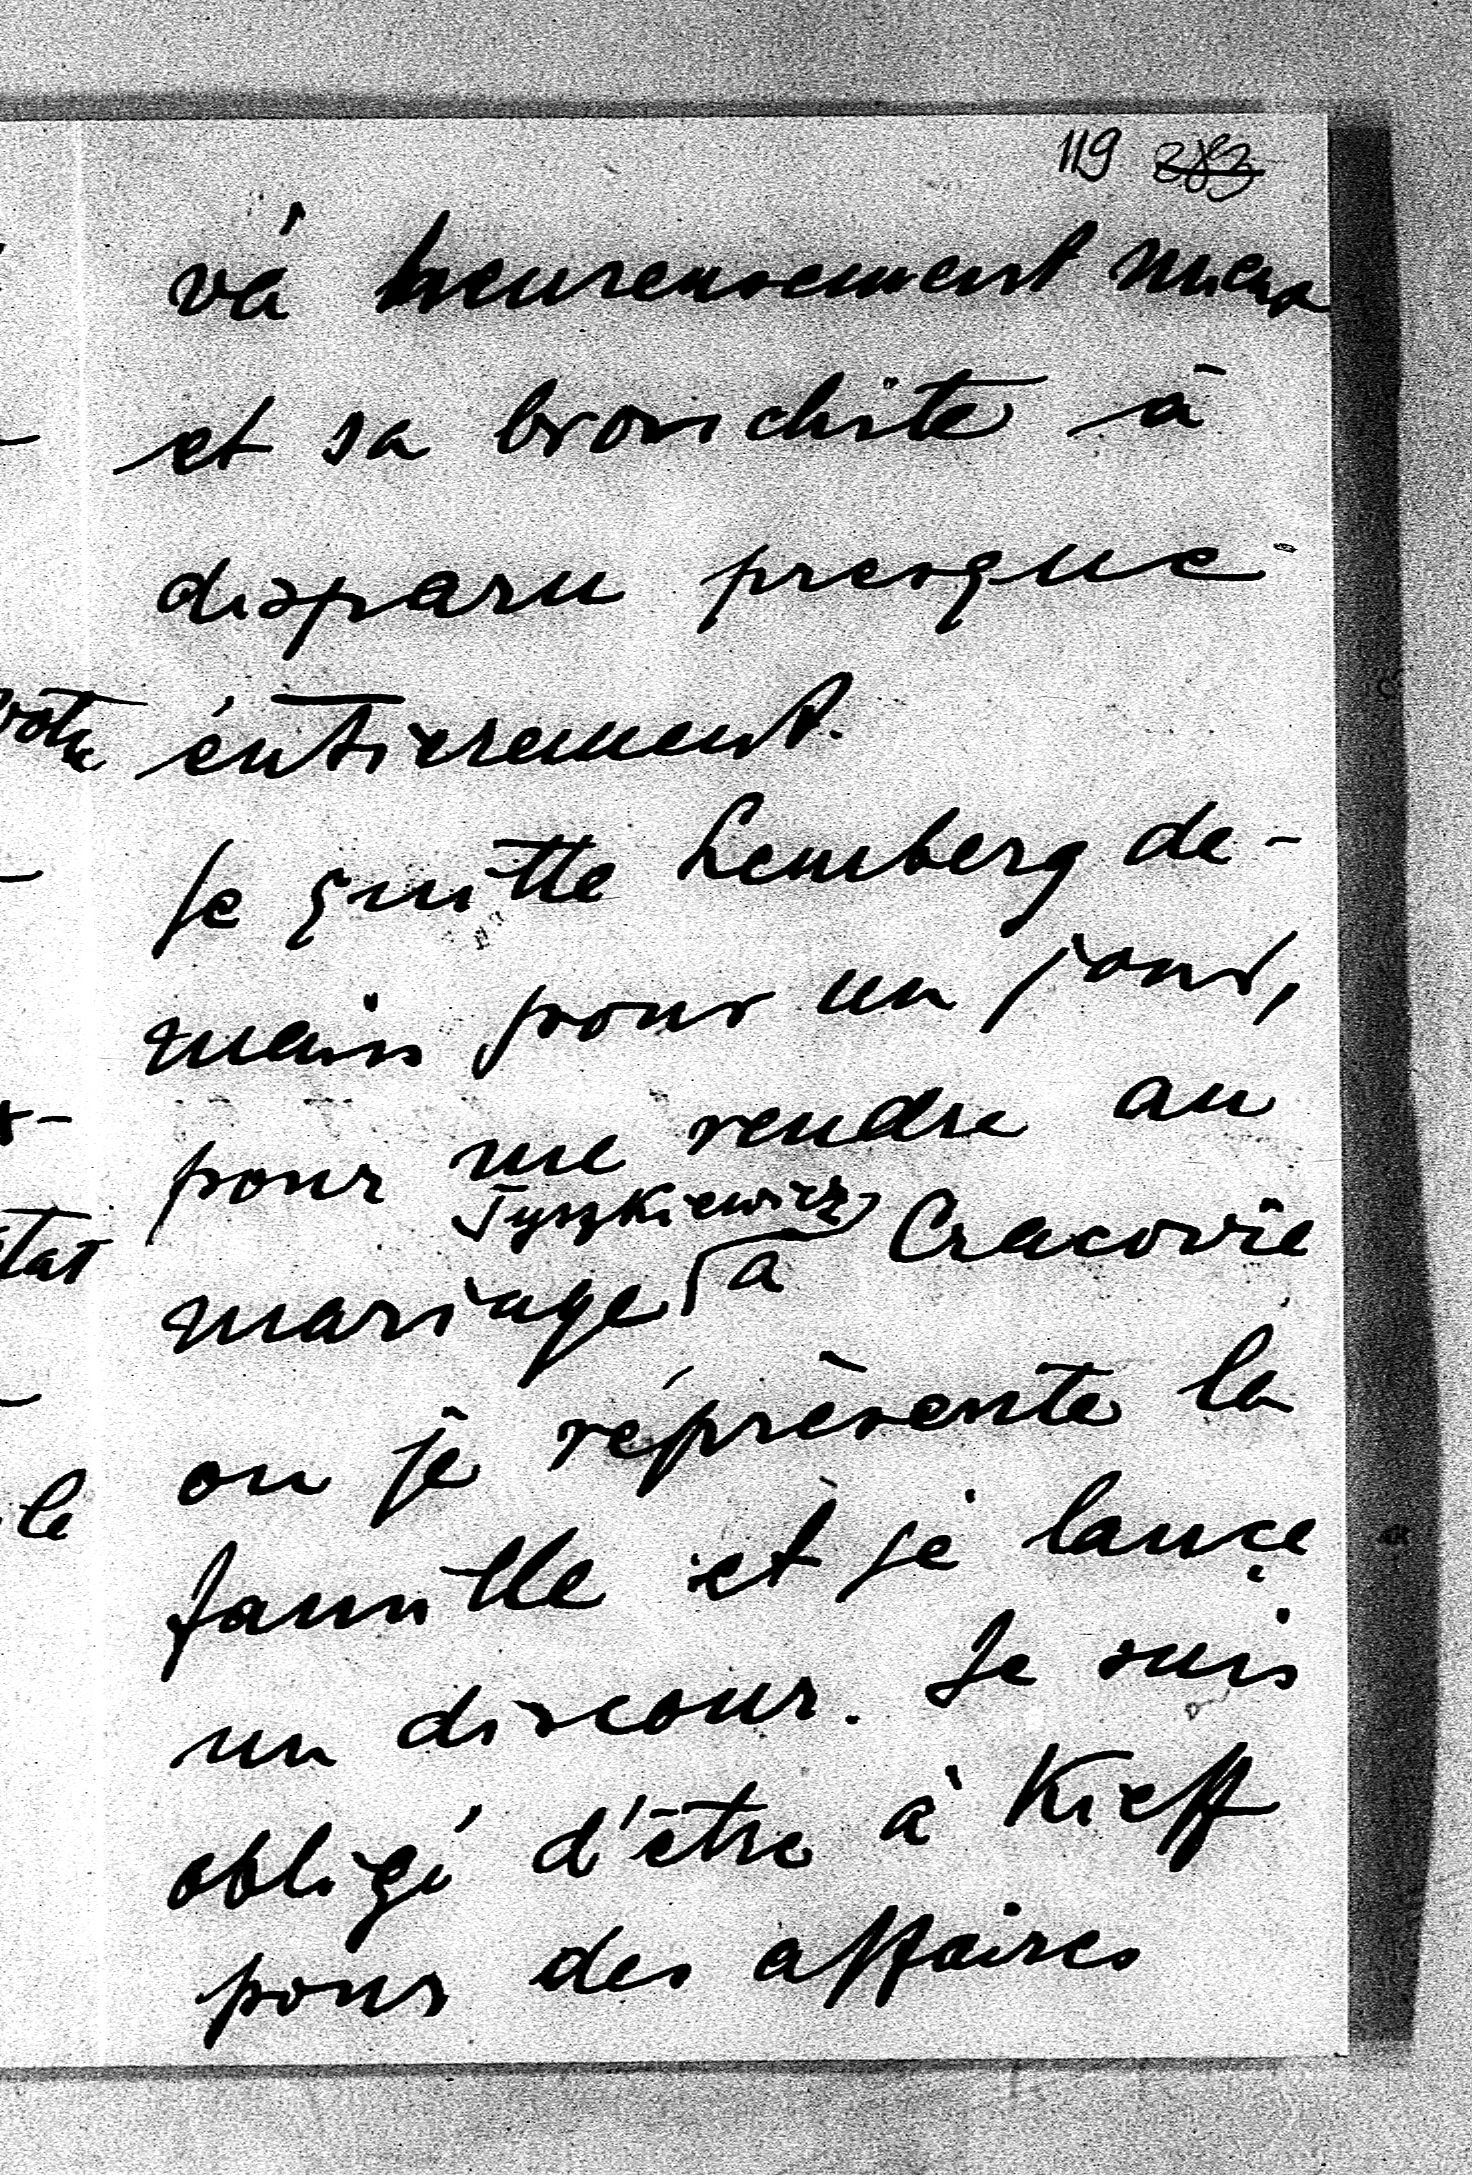 119 283
vá heureusement mieux
et sa bronchite à
disparu presque
éntièrement.
Je quitte Lemberg de-
main pour un jour,
pour me rendre au
Tyszkiewicz
mariage à Cracovie
ou je réprèsente la
famille et je lance
un discour. Je suis
obligé d'être à Kieff
pour des affaires
votre
état
le